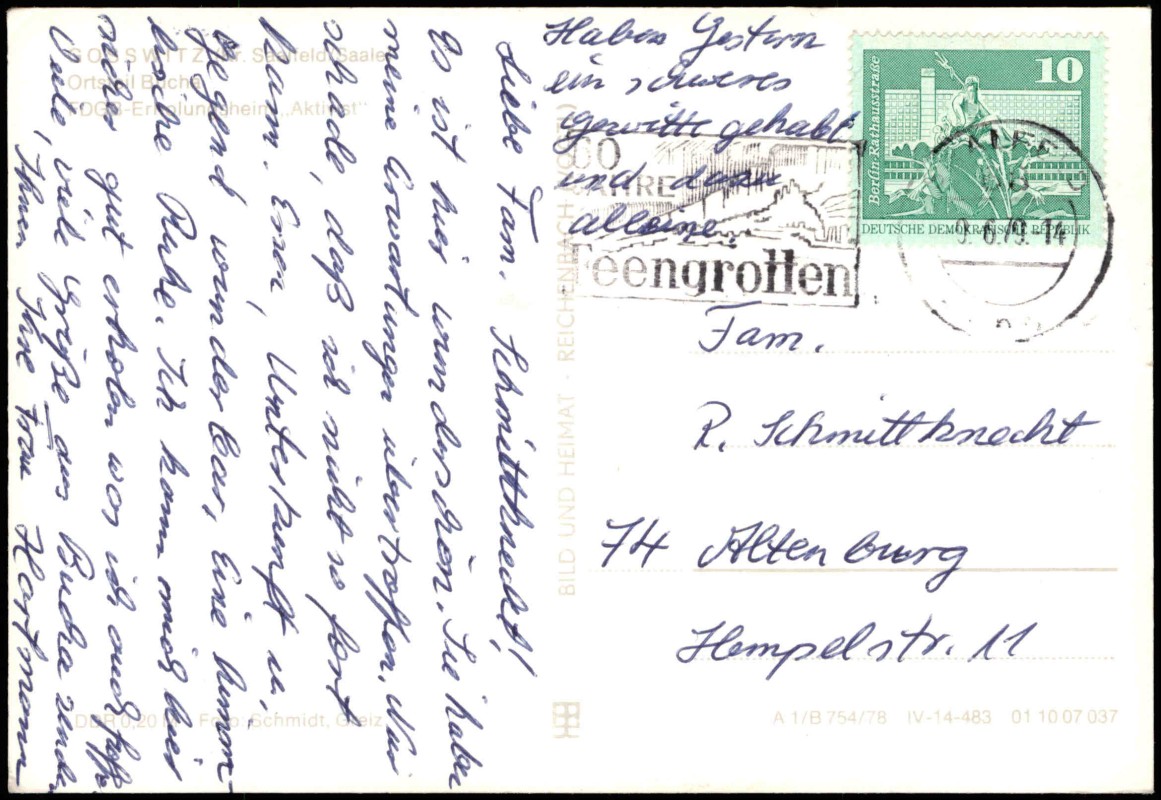 GOSSWITZ, Kr. Saalfeld/Saale
Ortsteil Bucha
FDGB-Erholungsheim „Aktivist"
Liebe Fam. Schmittknecht!
Es ist hier wunderschön. Sie haben
meine Erwartungen übertroffen. Nur
schade, daß ich nicht so fort
kann. Essen, Unterkunft u.
Gegend wunderbar, Eine himm-
lische Ruhe. Ich kann mich hier
sicher gut erholen was ich auch hoffe
Viele, viele Grüße aus Bucha sendet
Ihnen Ihre Frau Hartmann
Haben Gestern
ein schweres
gewitte gehabt
und dann
alleine.
DDR 0,20 M Foto: Schmidt, Greiz
BILD UND HEIMAT · REICHENBACH
10
Berlin-Rathausstraße
DEUTSCHE DEMOKRATISCHE REPUBLIK
JAHRE
Feengrotten
9.6.79.-14
Fam.
R. Schmittknecht
74 Altenburg
Hempelstr. 11
A 1/B 754/78 IV-14-483 01 10 07 037